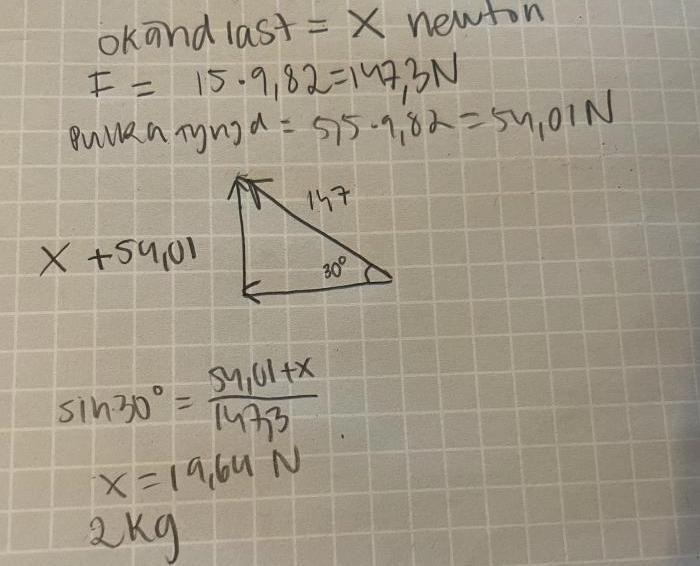 okänd last = X newton
F = 15·9,82=147,3N
pulka tyngd = 5,5·9,82=54,01N
147
X +54,01
30°
sin30° = 54,01+x / 147,3
x=19,64 N
2kg